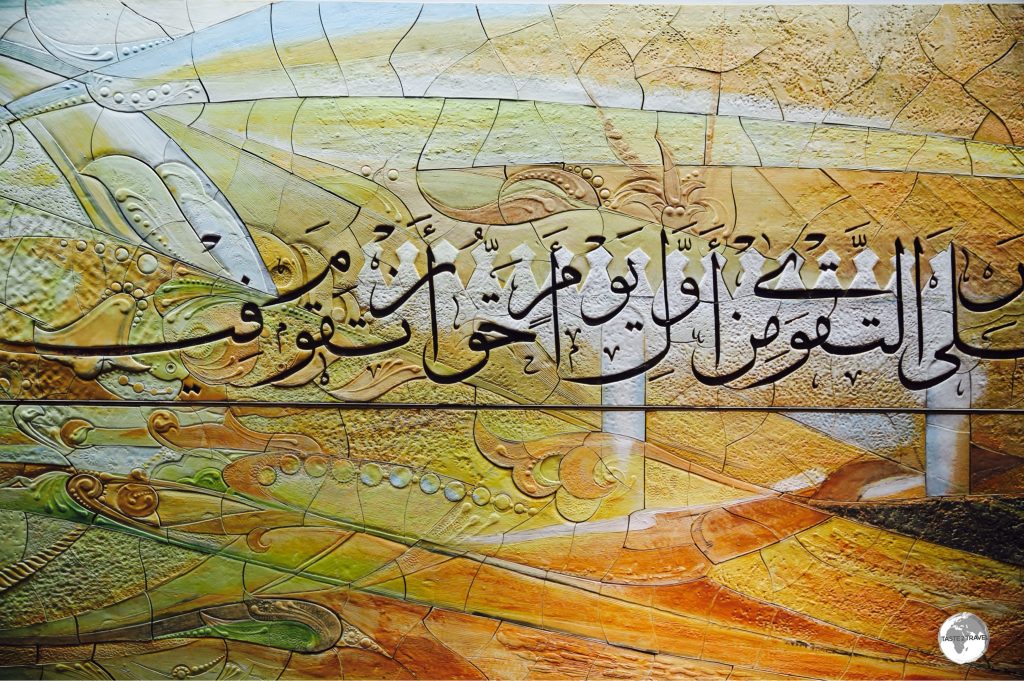 على التقوى من أول يوم أحق أن تقوم فيه
TASTE2TRAVEL